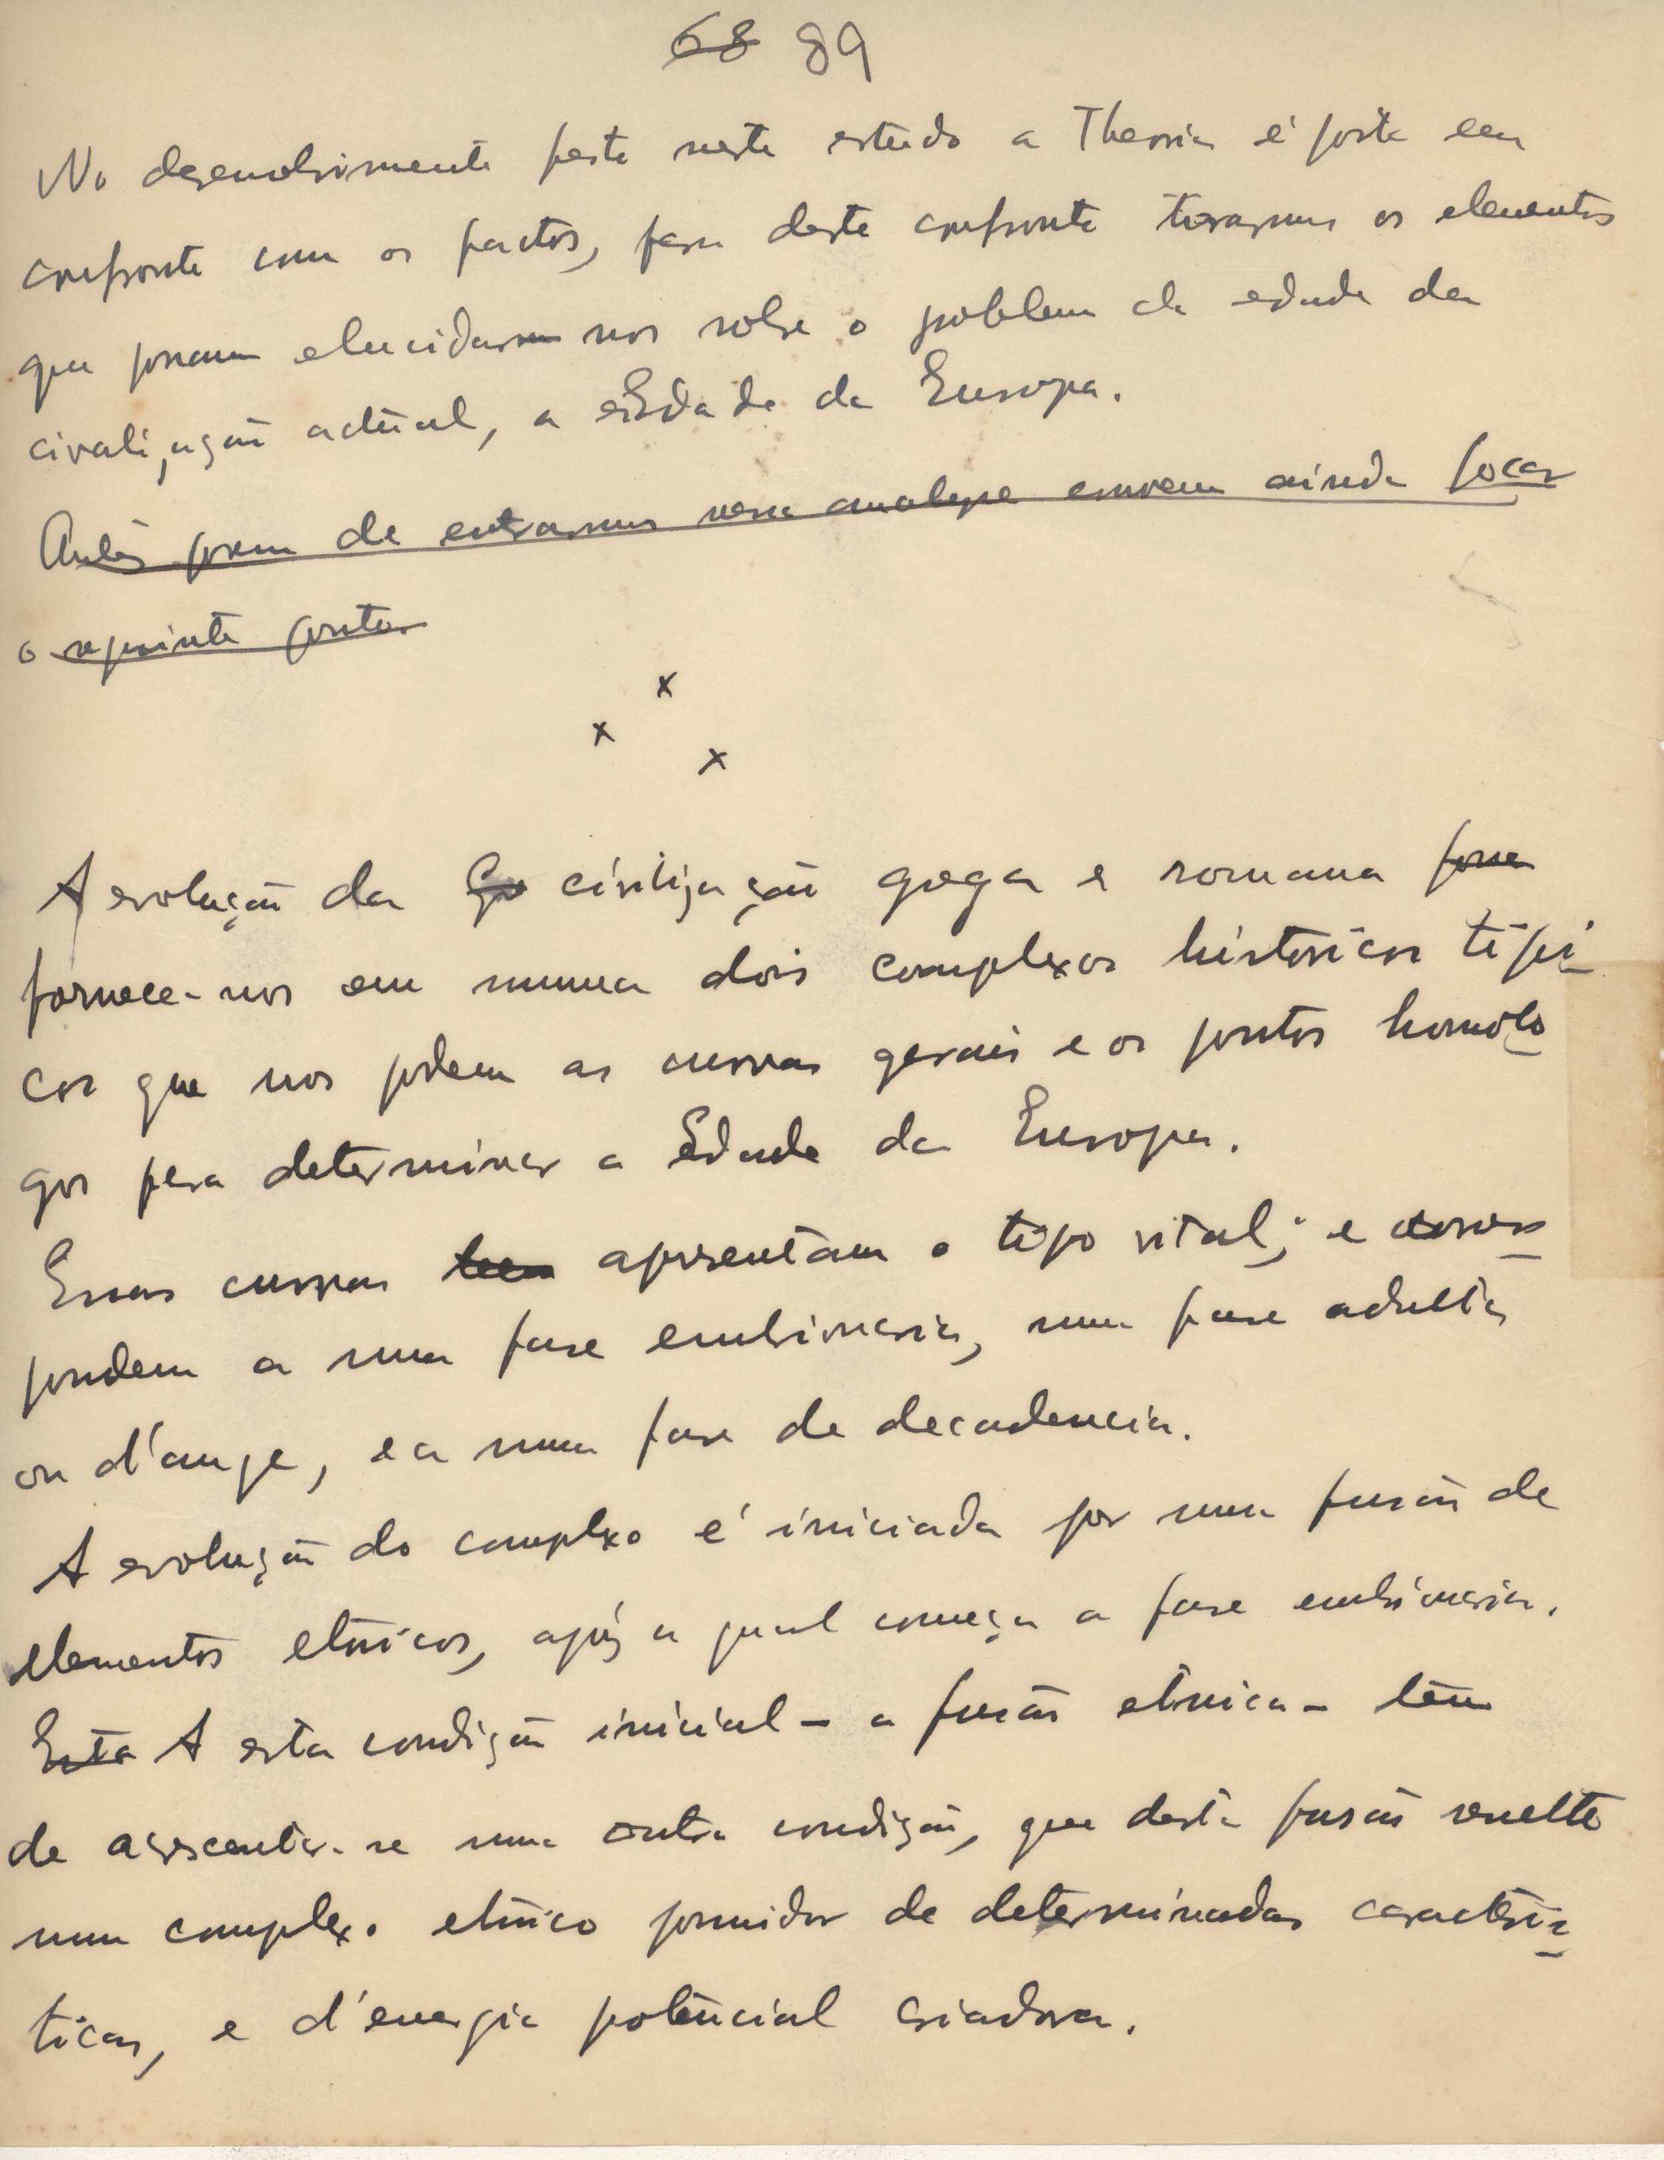 68 89
No desenvolvimento feito neste estudo a Theoria é posta em
confronto com os factos, para deste confronto tirarmos os elementos
que possam elucidar nos sobre o problema da edade da
civilização actual, a Edade da Europa.
Antes porem de entrarmos nessa analyse convem ainda focar
o seguinte ponto.
x
x x
A evolução da civilização grega e romana
fornece-nos em summa dois complexos historicos tipi-
cos que nos podem as curvas gerais e os pontos homolo-
gos para determinar a Edade da Europa.
Essas curvas apresentam o tipo vital; e corres-
pondem a uma fase embrionaria, uma fase adulta,
ou d'auge, e a uma fase de decadencia.
A evolução do complexo é iniciada por uma fusão de
elementos etnicos, após a qual começa a fase embrionaria.
Esta A esta condição inicial - a fusão etnica - tem
de acrescentar-se uma outra condição, que desta fusão resulte
num complexo etnico possuidor de determinadas caracteris-
ticas, e d'energia potencial criadora.